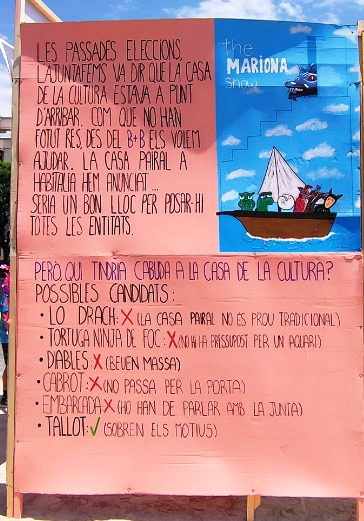 LES PASSADES ELECCIONS,
L'AJUNTAFEM'S VA DIR QUE LA CASA
DE LA CULTURA ESTAVA A PUNT
D'ARRIBAR. COM QUE NO HAN
FOTUT RES, DES DEL B+B ELS VOLEM
AJUDAR. LA CASA PAIRAL A
HABITALIA HEM ANUNCIAT...
SERIA UN BON LLOC PER POSAR-HI
TOTES LES ENTITATS.
the
MARIONA
show
PERÒ, QUI TINDRIA CABUDA A LA CASA DE LA CULTURA?
POSSIBLES CANDIDATS:
• LO DRACH: X (LA CASA PAIRAL NO ES PROU TRADICIONAL)
• TORTUGA NINJA DE FOC: X (NO HI HA PRESSUPOST PER UN AQUARI)
• DABLES: X (BEUEN MASSA)
• CABROT: X (NO PASSA PER LA PORTA)
• EMBARCADA: X (HO HAN DE PARLAR AMB LA JUNTA)
• TALLOT: ✓ (SOBREN ELS MOTIUS)